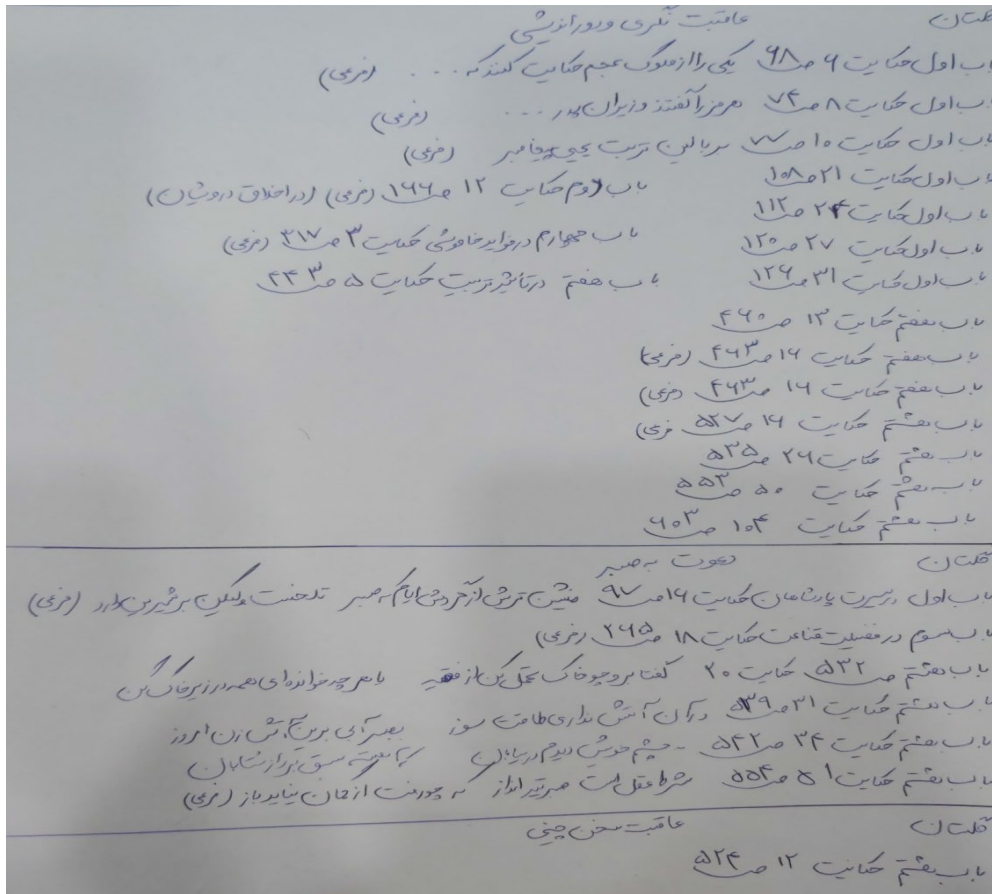 گلستان عاقبت نگری و دوراندیشی
باب اول حکایت ۶ ص ۶۸ یکی را از ملوک عجم حکایت کنند که .... (فرعی)
باب اول حکایت ۸ ص ۷۴ هرمز را گفتند وزیران پدر .... (فرعی)
باب اول حکایت ۱۰ ص ۷۷ بر بالین تربت یحیی پیغامبر (فرعی)
باب اول حکایت ۲۱ ص ۱۰۸ باب دوم حکایت ۱۲ ص ۱۶۶ (فرعی) (در اخلاق درویشان)
باب اول حکایت ۲۴ ص ۱۱۲
باب اول حکایت ۲۷ ص ۱۲۰ باب چهارم در فواید خاموشی حکایت ۳ ص ۳۱۷ (فرعی)
باب اول حکایت ۳۱ ص ۱۲۶ باب هفتم در تأثیر تربیت حکایت ۵ ص ۴۴۳
باب هفتم حکایت ۱۳ ص ۴۶۰
باب هفتم حکایت ۱۶ ص ۴۶۳ (فرعی)
باب هفتم حکایت ۱۶ ص ۴۶۳ (فرعی)
باب هشتم حکایت ۱۶ ص ۵۲۷ فرعی)
باب هشتم حکایت ۲۶ ص ۵۳۵
باب هشتم حکایت ۵۰ ص ۵۵۳
باب هشتم حکایت ۱۰۴ ص ۶۰۳
گلستان دعوت به صبر
باب اول در سیرت پادشاهان حکایت ۱۶ ص ۹۷ منشین ترش از گردش ایام که صبر تلخست ولیکن بر شیرین دارد (فرعی)
باب سوم در فضیلت قناعت حکایت ۱۸ ص ۲۶۵ (فرعی)
باب هشتم ص ۵۳۲ حکایت ۲۰ گفتا برو چو خاک تحمل کن از فقیه یا هر چه خوانده‌ای همه در زیر خاک کن
باب هشتم حکایت ۳۱ ص ۵۳۹ در آن آتش نداری طاقت سوز بصبر آبی برین آتش زن امروز
باب هشتم حکایت ۳۴ ص ۵۴۲ به چشم خویش دیدم در بیابان که آهسته سبق برد از شتابان
باب هشتم حکایت ۵۱ ص ۵۵۴ شرط عقل است صبر تیرانداز که چو رفت از کمان نیاید باز (فرعی)
گلستان عاقبت سخن چینی
باب هشتم حکایت ۱۲ ص ۵۲۴